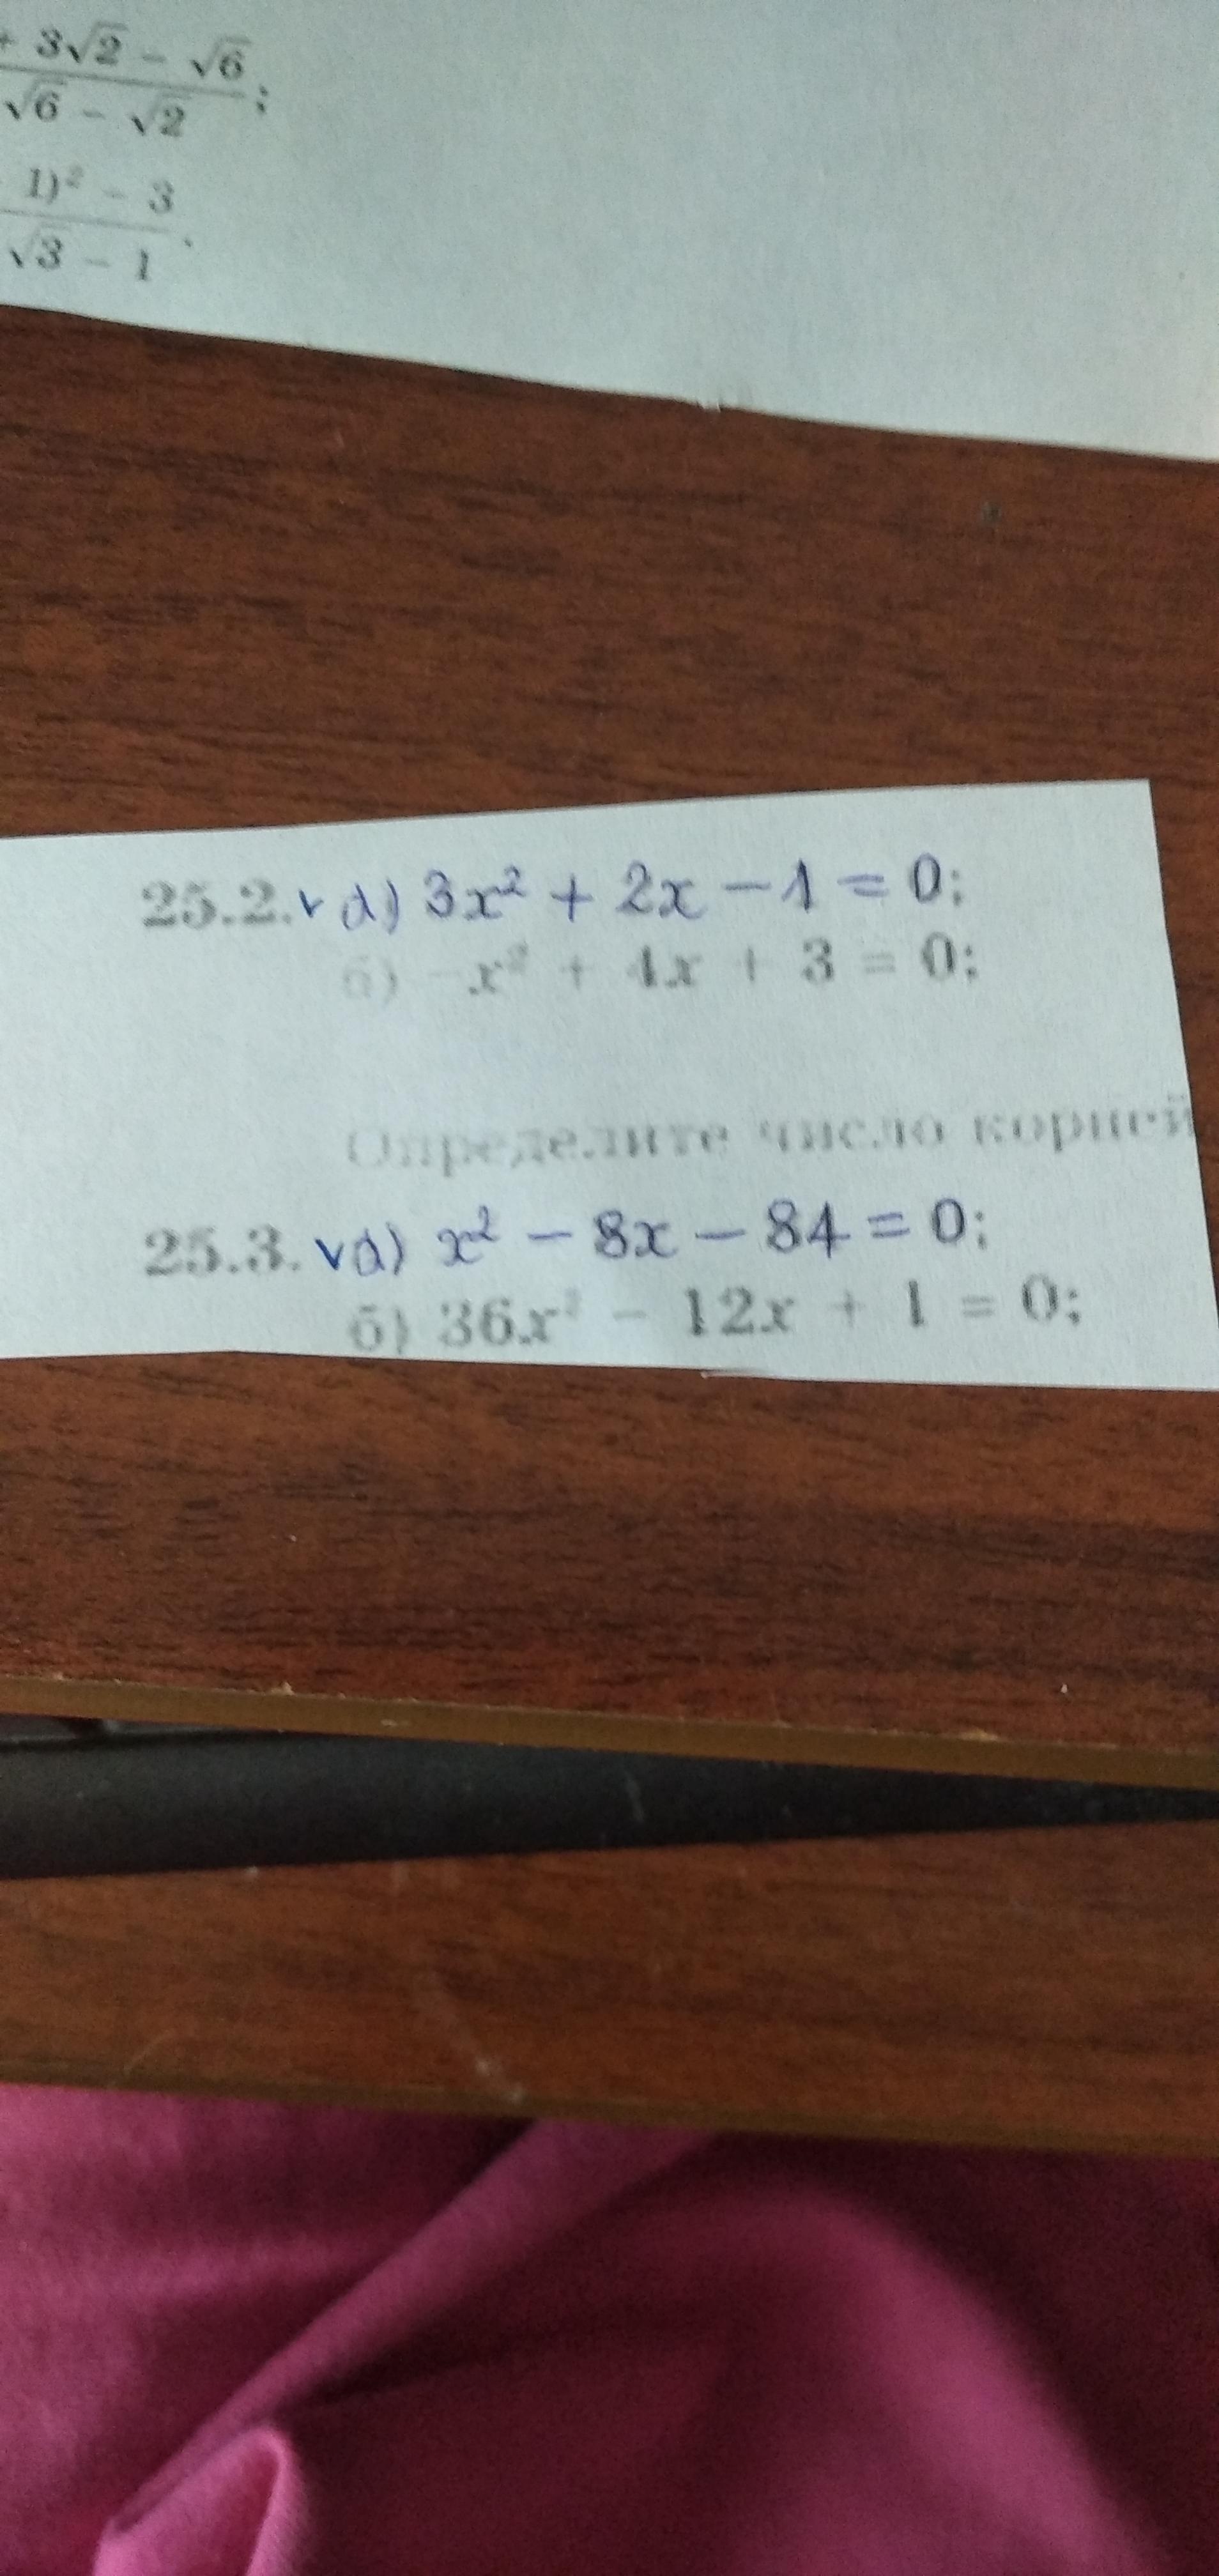 + 3√2 − √6
√6 − √2 ;
1)² − 3
√3 − 1 .
25.2. v а) 3x² + 2x − 1 = 0;
б) −x² + 4x + 3 = 0;
Определите число корней
25.3. v а) x² − 8x − 84 = 0;
б) 36x² − 12x + 1 = 0;